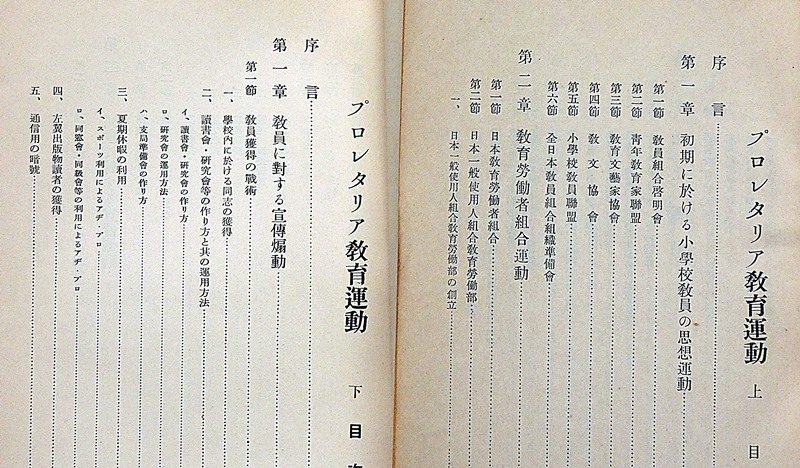 プロレタリア教育運動 上 目
序言
第一章 初期に於ける小學校教員の思想運動
第一節 教員組合啓明會
第二節 青年教育家聯盟
第三節 教育文藝家協會
第四節 教文協會
第五節 小學校教員聯盟
第六節 全日本教員組合組織準備會
第二章 教育勞働者組合運動
第一節 日本教育勞働者組合
第二節 日本一般使用人組合教育勞働部
一、日本一般使用人組合教育勞働部の創立
プロレタリア教育運動 下 目次
序言
第一章 教員に對する宣傳煽動
第一節 教員獲得の戰術
一、學校內に於ける同志の獲得
二、讀書會・硏究會等の作り方と其の運用方法
イ、讀書會・硏究會の作り方
ロ、硏究會の運用方法
ハ、支局準備會の作り方
三、夏期休暇の利用
イ、スポーツ利用によるアヂ・プロ
ロ、同窓會・同級會等の利用によるアヂ・プロ
四、左翼出版物讀者の獲得
五、通信用の暗號